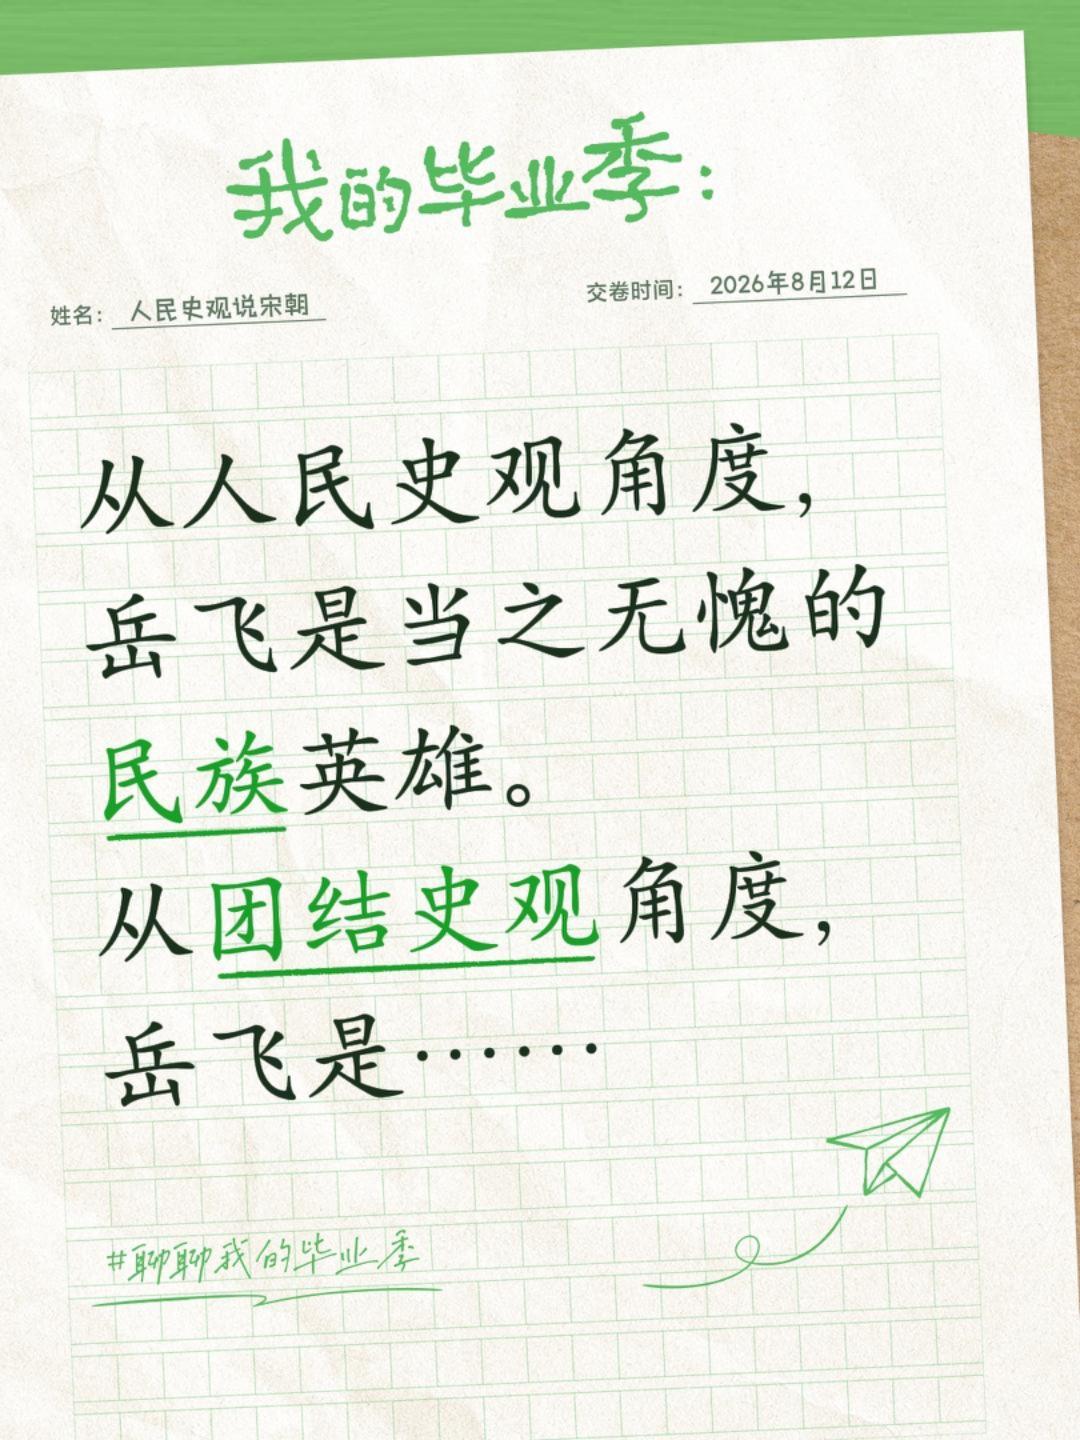 我的毕业季：
姓名：人民史观说宋朝
交卷时间：2026年8月12日
从人民史观角度，
岳飞是当之无愧的
民族英雄。
从团结史观角度，
岳飞是……
#聊聊我的毕业季